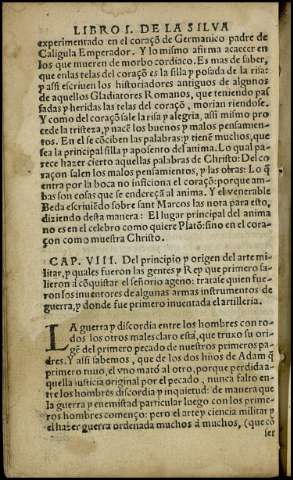 LIBRO I. DE LA SILVA
experimentado en el coraçõ de Germanico padre de
Caligula Emperador. Y lo mismo afirma acaecer en
los que mueren de morbo cordiaco. Es mas de saber,
que en las telas del coraçõ es la silla y posada de la risa:
y assi escriuen los historiadores antiguos de algunos
de aquellos Gladiatores Romanos, que teniendo pas
sadas y heridas las telas del coraçõ, morian riendose.
Y como del coraçõ sale la risa y alegria, assi mismo pro
cede la tristeza, y nacẽ los buenos y malos pensamien
tos. En el se cõciben las palabras: y tienẽ muchos, que
sea la principal silla y aposento del anima. Lo qual pa-
rece hazer cierto aquellas palabras de Christo: Del co
raçon salen los malos pensamientos, y las obras: Lo q̃
entra por la boca no insiciona el coraçõ: porque am-
bas son cosas que se endereçã al anima. Y el venerable
Beda escriuiẽdo sobre sant Marcos las nota para esto,
diziendo desta manera: El lugar principal del anima
no es en el celebro como quiere Platõ: sino en el cora-
çon como muestra Christo.
CAP. VIII. Del principio y origen del arte mi-
litar, y quales fueron las gentes y Rey que primero sa-
lieron a cõquistar el señorio ageno: tratase quien fue-
ron los inuentores de algunas armas instrumentos de
guerra, y donde fue primero inuentada el artilleria.
LA guerra y discordia entre los hombres con to-
dos los otros males claro està, que truxo su ori-
gẽ del primero pecado de nuestros primeros pa-
dres. Y assi sabemos, que de los dos hijos de Adam q̃
primero nuuo, el vno matò al otro, porque perdida a-
quella justicia original por el pecado, nunca faltò en-
tre los hombres discordia y inquietud: de manera que
la guerra y enemistad particular luego con los prime-
ros hombres començo: pero el arte y ciencia militar y
el hazer guerra ordenada muchos à muchos, (que cõ
ser